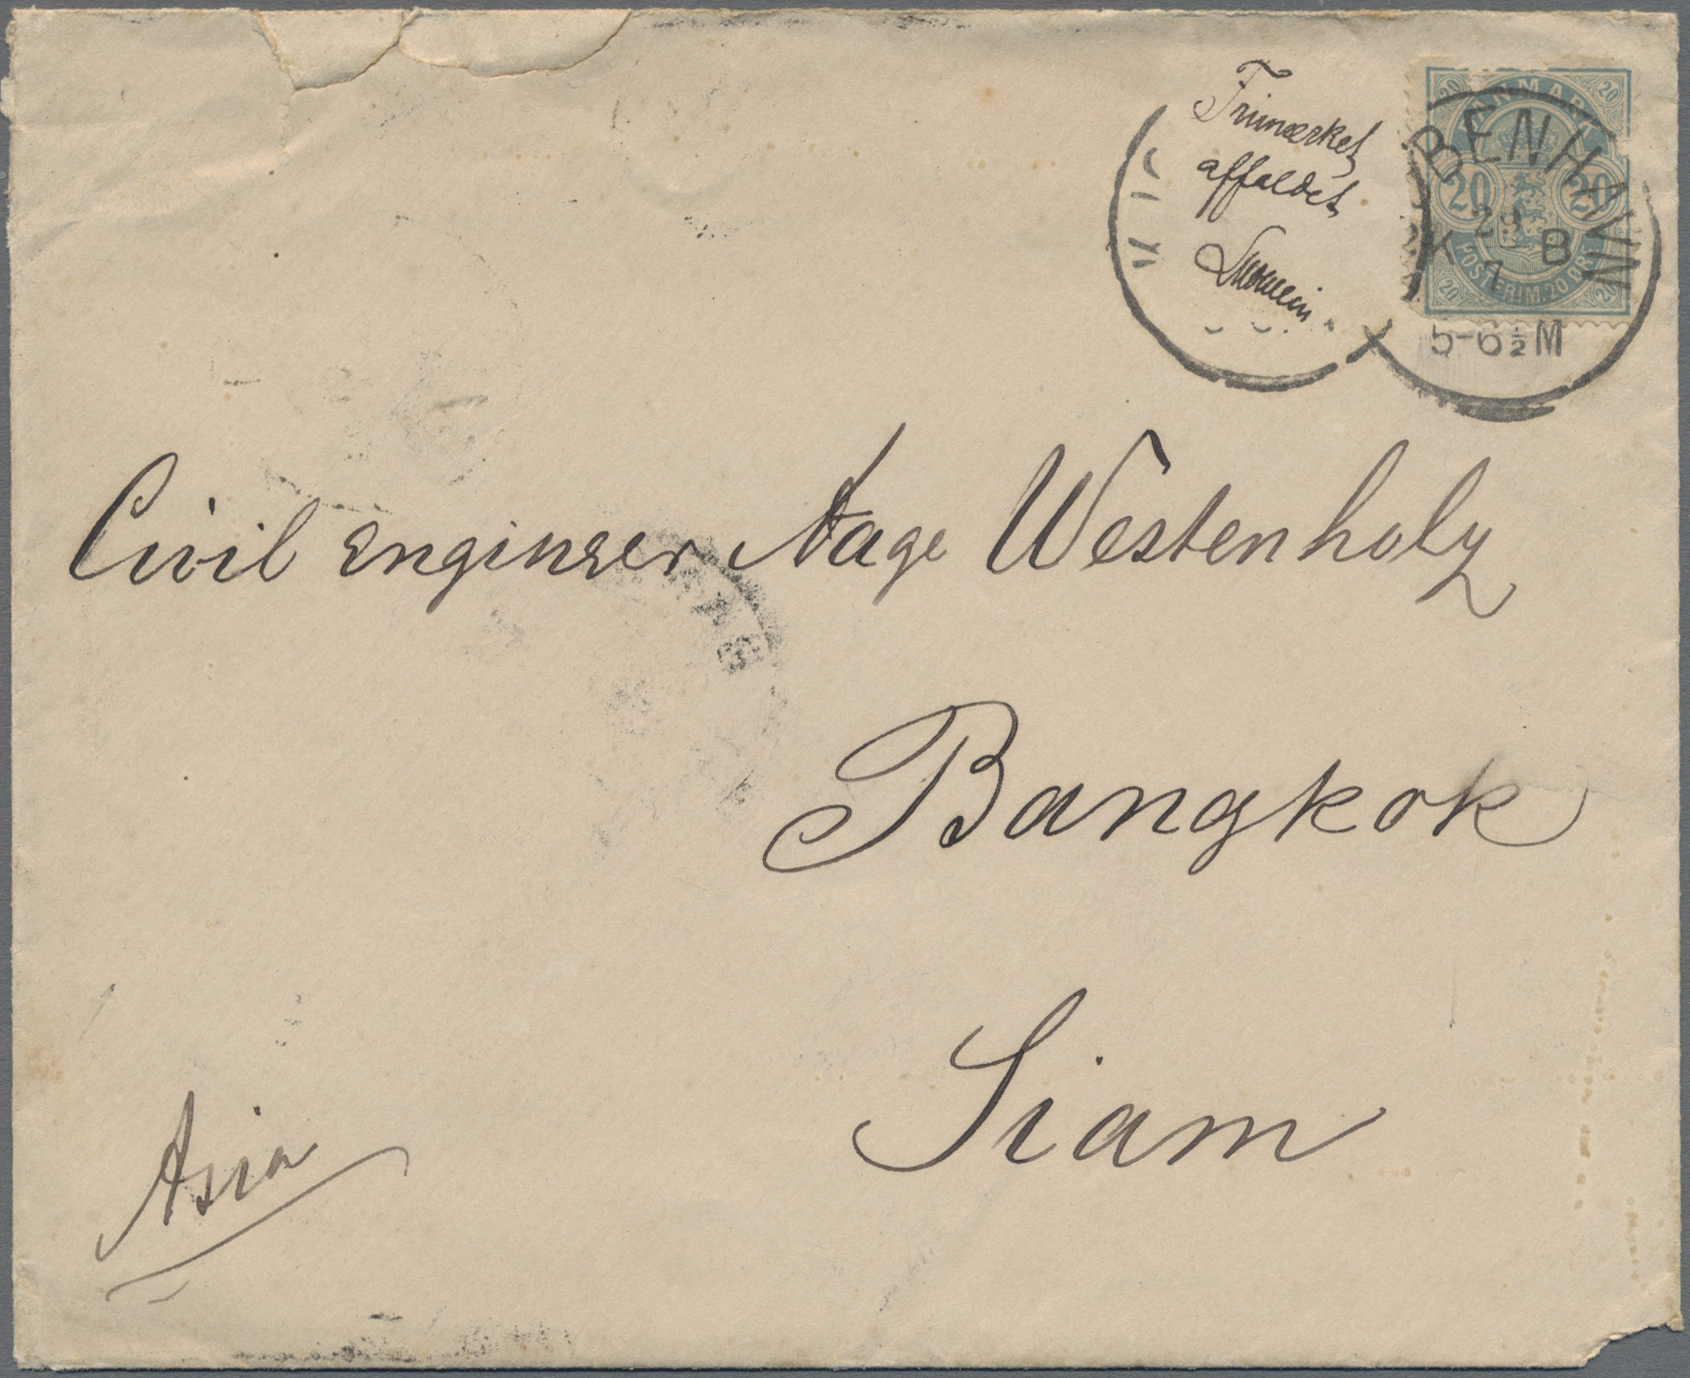 Frimærket
affaldet
DANMARK
20 20
20 20
POSTFRIM. 20 ØRE
20 20
BENHAVN
K B
7
5-6½M
Civil engineer Aage Westenholz
Bangkok
Siam
Asia